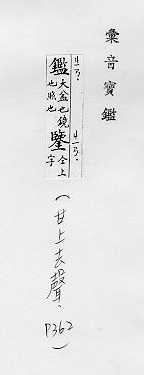 彙音寶鑑
鑑 大盆也鏡也照也 鑒 仝上字
(甘上去聲、P362)